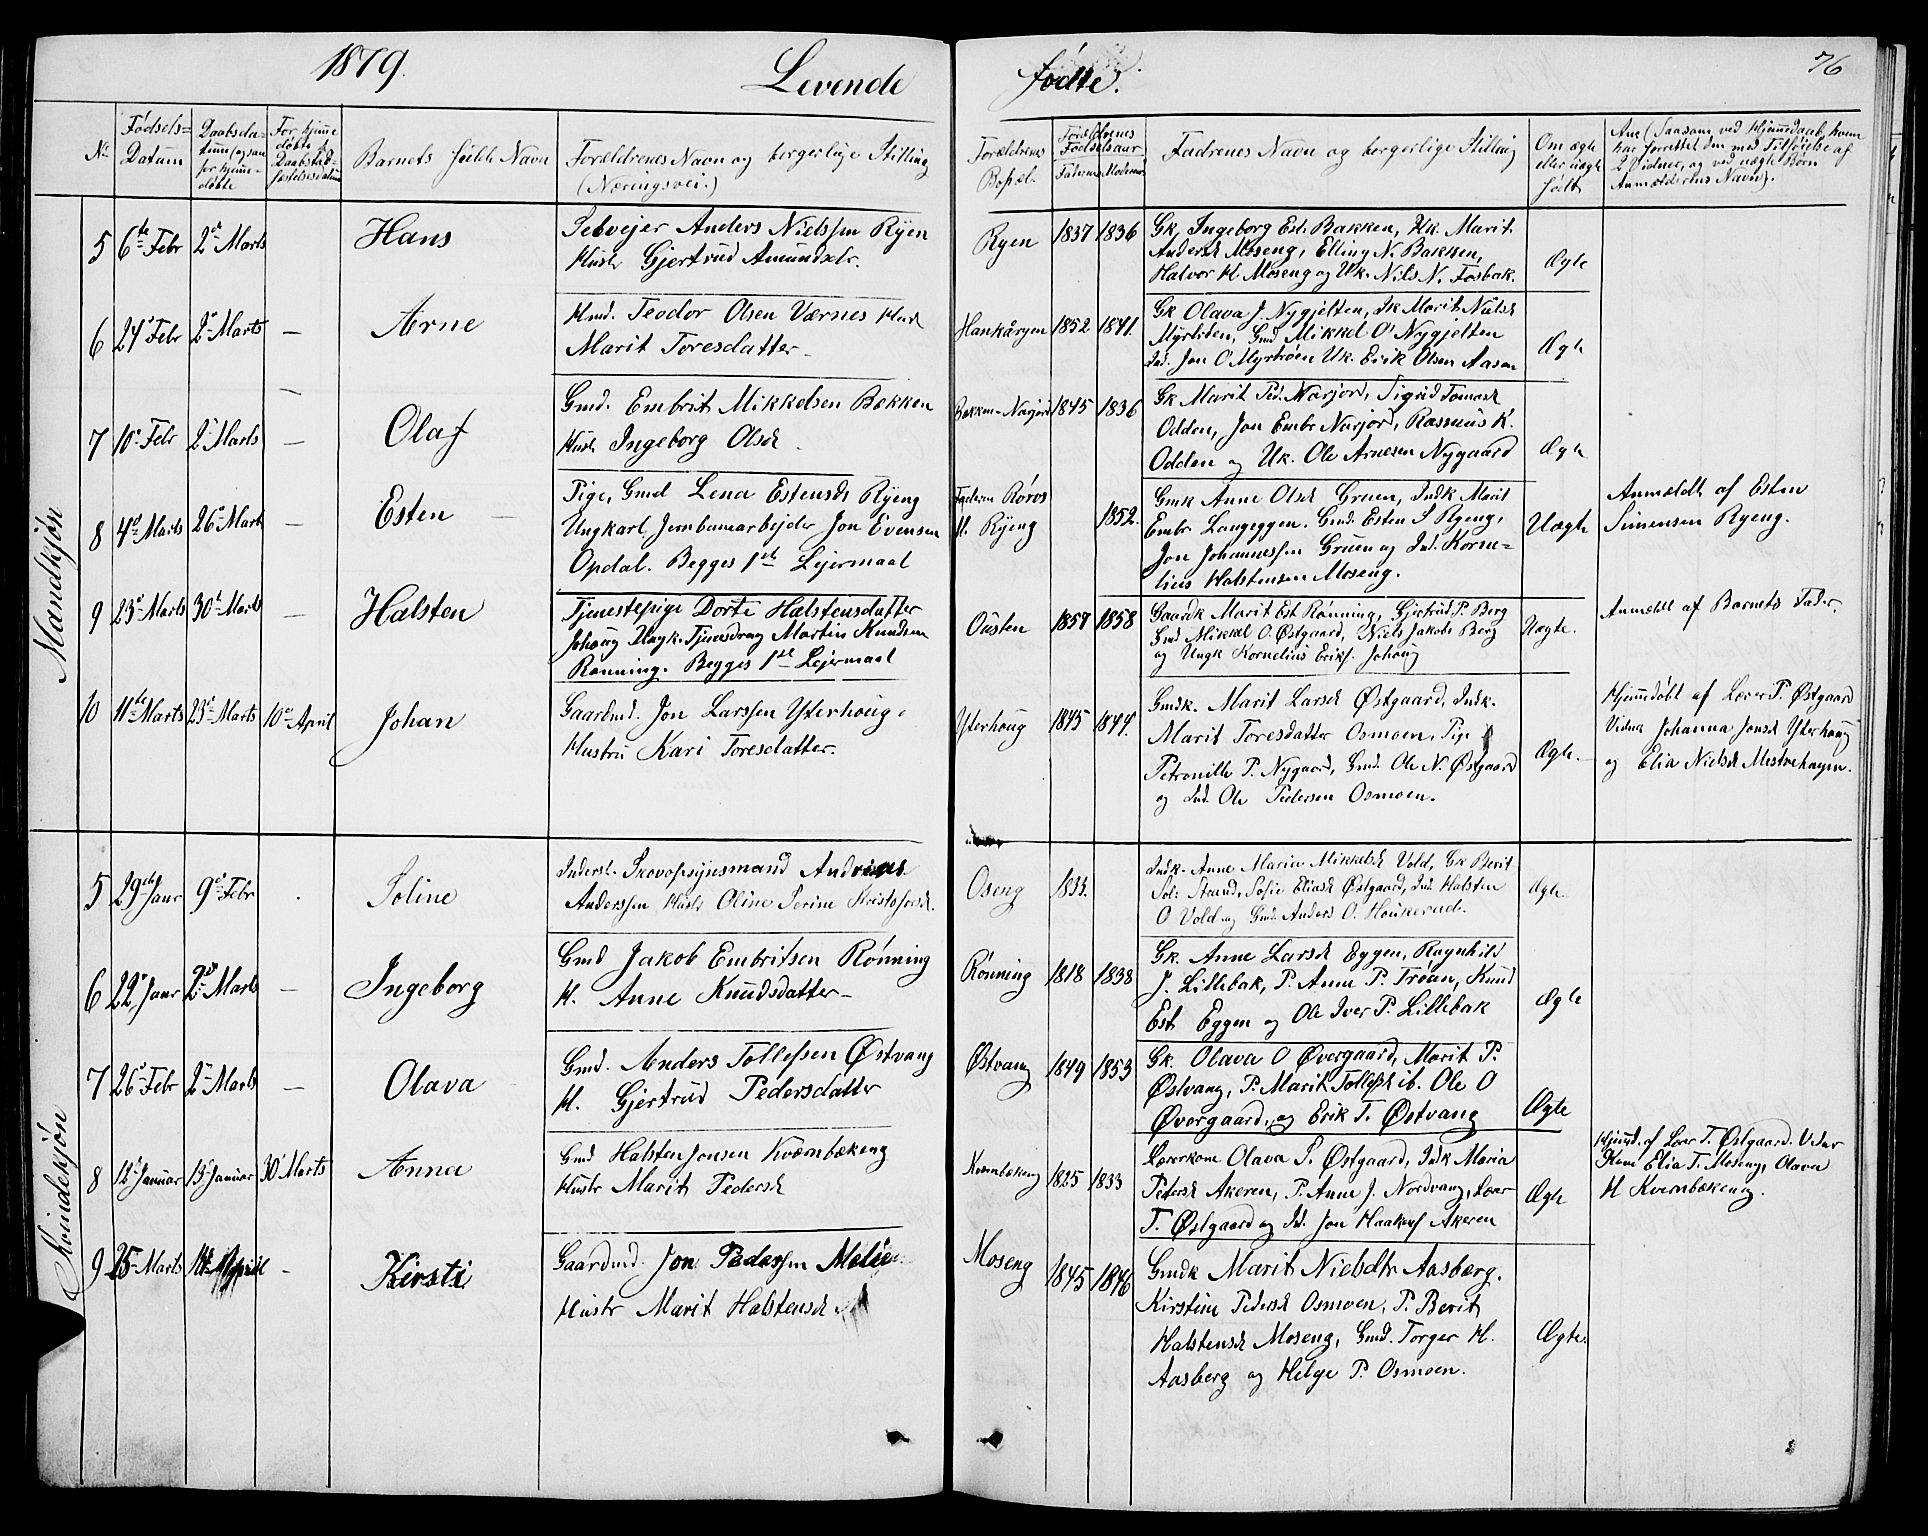 1879.
Levende
fødte.
76
No
Fødsels=
Datum
Daabsda-
tum
for hjemme-
døbte
For hjemme
døbte
Daabstad-
fæstelsesdatum
Barnets fulde Navn
Forældrenes Navn og borgerlige Stilling
(Næringsvei.)
Forældrenes
Bopæl.
Forældrenes
Fødselsaar
Faderens Moderens
Fadrenes Navn og borgerlige Stilling
Om ægte
eller uægte
født
Anm (Saasom ved Hjemmedaab, hvem
har forrettet den med Tilføielse af
2 Vidner, og ved uægte Børn
Anmelderens Navn).
Mandkjøn
5 6te Febr 2den Marts Hans
Anders Nielssen Ryen
Hustr Gjertrud Amundsdtr.
Ryen 1837 1836
Gk. Ingeborg Est. Bakken, Uk. Marit
Andersd Moseng, Elling N. Bakken,
Halvor H. Moseng og Uk. Nils N. Fosbak.
Ægte
6 24de Febr 2den Marts — Arne
Hmd. Teodor Olsen Værnes Hust
Marit Toresdatter
1852 1841.
Gk Olava J. Nygjelten, Ik Marit Nilsd
Myrliden, Gmd Mikkel O. Nygjelten
Ind. Jon O. Myrmoen Uk. Erik Olsen Aasen
Ægte
7 10de Febr 2den Marts — Olaf
Gmd. Embrit Mikkelsen Bakken
Hustr Ingeborg Olsd.
Bakken-Narjord 1845 1836
Gk Marit Ped. Narjord, Sigrid Tomasd
Odden, Jon Embr Narjord, Rasmus K.
Odden og Uk. Ole Arnesen Nygaard
Ægte
8 4de Marts 26de Marts — Esten
Pige, Gmd Lena Estensdr Ryeng
Ungkarl Jernbanearbejder Jon Evensen
Opdal. Begges 1ste Lejermaal
Faderen Røros
M. Ryeng 1852.
Gmk Anne Olsd Gruen, Indk Marit
Embr Langeggen. Gmd. Esten S Ryeng,
Jon Johannessen Gruen og Ind. Korne=
lius Halstensen Moseng.
Uægte
Anmeldt af Esten
Simensen Ryeng.
9 23de Marts 30te Marts — Halsten
Tjenestepige Dorte Halstensdatter
Johaug Ungk. Tjenesdreng Martin Knudsen
Rønning. Begges 1ste Lejermaal
Ousten 1857 1858
Gaardk Marit Est. Rønning, Gjertrud P. Berg
Gmd Mikkel O. Østgaard, Niels Jakobs Berg
og Ungk Kornelius Eriks. Johaug
Uægte.
Anmeldt af Barnets Fader.
10 11te Marts 23de Marts 10de April Johan
Gaardmd. Jon Larssen Ytterhoug.
Hustru Kari Toresdatter.
Ytterhoug 1845 1844.
Gmdk. Marit Larsd Østgaard, Indk.
Marit Toresdatter Osmoen, Pige
Petronille P. Nygaard, Gmd. Ole N. Østgaard
og Ind. Ole Pedersen Osmoen.
Ægte.
Hjemmedøbt af Lærer P. Østgaard
Vidner Johanna Jonsd Ytterhoug
og Elia Nielsd
Kvindekjøn
5 29de Janr 9de Febr Soline
Inderst. Skovopsynsmand Andreas
Anderssen Hustr Oline Serine Kristofersd.
Oseng 1833.
Indk. Anne Maria Mikkelsd Vold, Gk Berit
Strand, Sofie Eliasd Østgaard, Ind. Halsten
O Vold og Gmd. Anders O.
Ægte
6 22de Janr 2den Marts — Ingeborg
Gmd Jakob Embritsen Rønning
H. Anne Knudsdatter
Rønning 1818 1838
Gk. Anne Larsd Eggen, Ragnhild
J. Lillebak, P. Anne P. Trøan, Knud
Est Eggen og Ole Iver P. Lillebak
Ægte
7 26de Febr 2den Marts — Olava
Gmd. Anders Tollefsen Østvang
H. Gjertrud Pedersdatter
Østvang 1849 1853
Gk. Olava O Øvergaard, Marit P.
Østvang, P. Marit Tollefsd ib. Ole O
Øvergaard, og Erik T. Østvang
Ægte
8 12te Januar 13de Januar 30te Marts Anna
Gmd Halsten Jonsen Kværnbækeng
Hustr Marit Pedersd
Kværnbækeng 1825 1833
Lærerkone Olava S. Østgaard, Indk Maria
Pedersd Akeren, P. Anne J. Nordvang, Lærer
T. Østgaard og Id. Jon Haakens Akeren
Ægte
Hjemmd. af Lærer T. Østgaard. Vidner
Kone Elia T. Moseng, Olava
H Kvernbækeng.
9 25de Marts April — Kirsti
Gaardmd. Jon Pederssen
Hustr Marit Halstensd
Moseng 1845 1846
Gmdk Marit Nielsdtr Aasberg.
Kirstine Pedersd Osmoen, P. Berit
Halstensd Moseng, Gmd. Torger H.
Aasberg og Helge P. Osmoen.
Ægte.